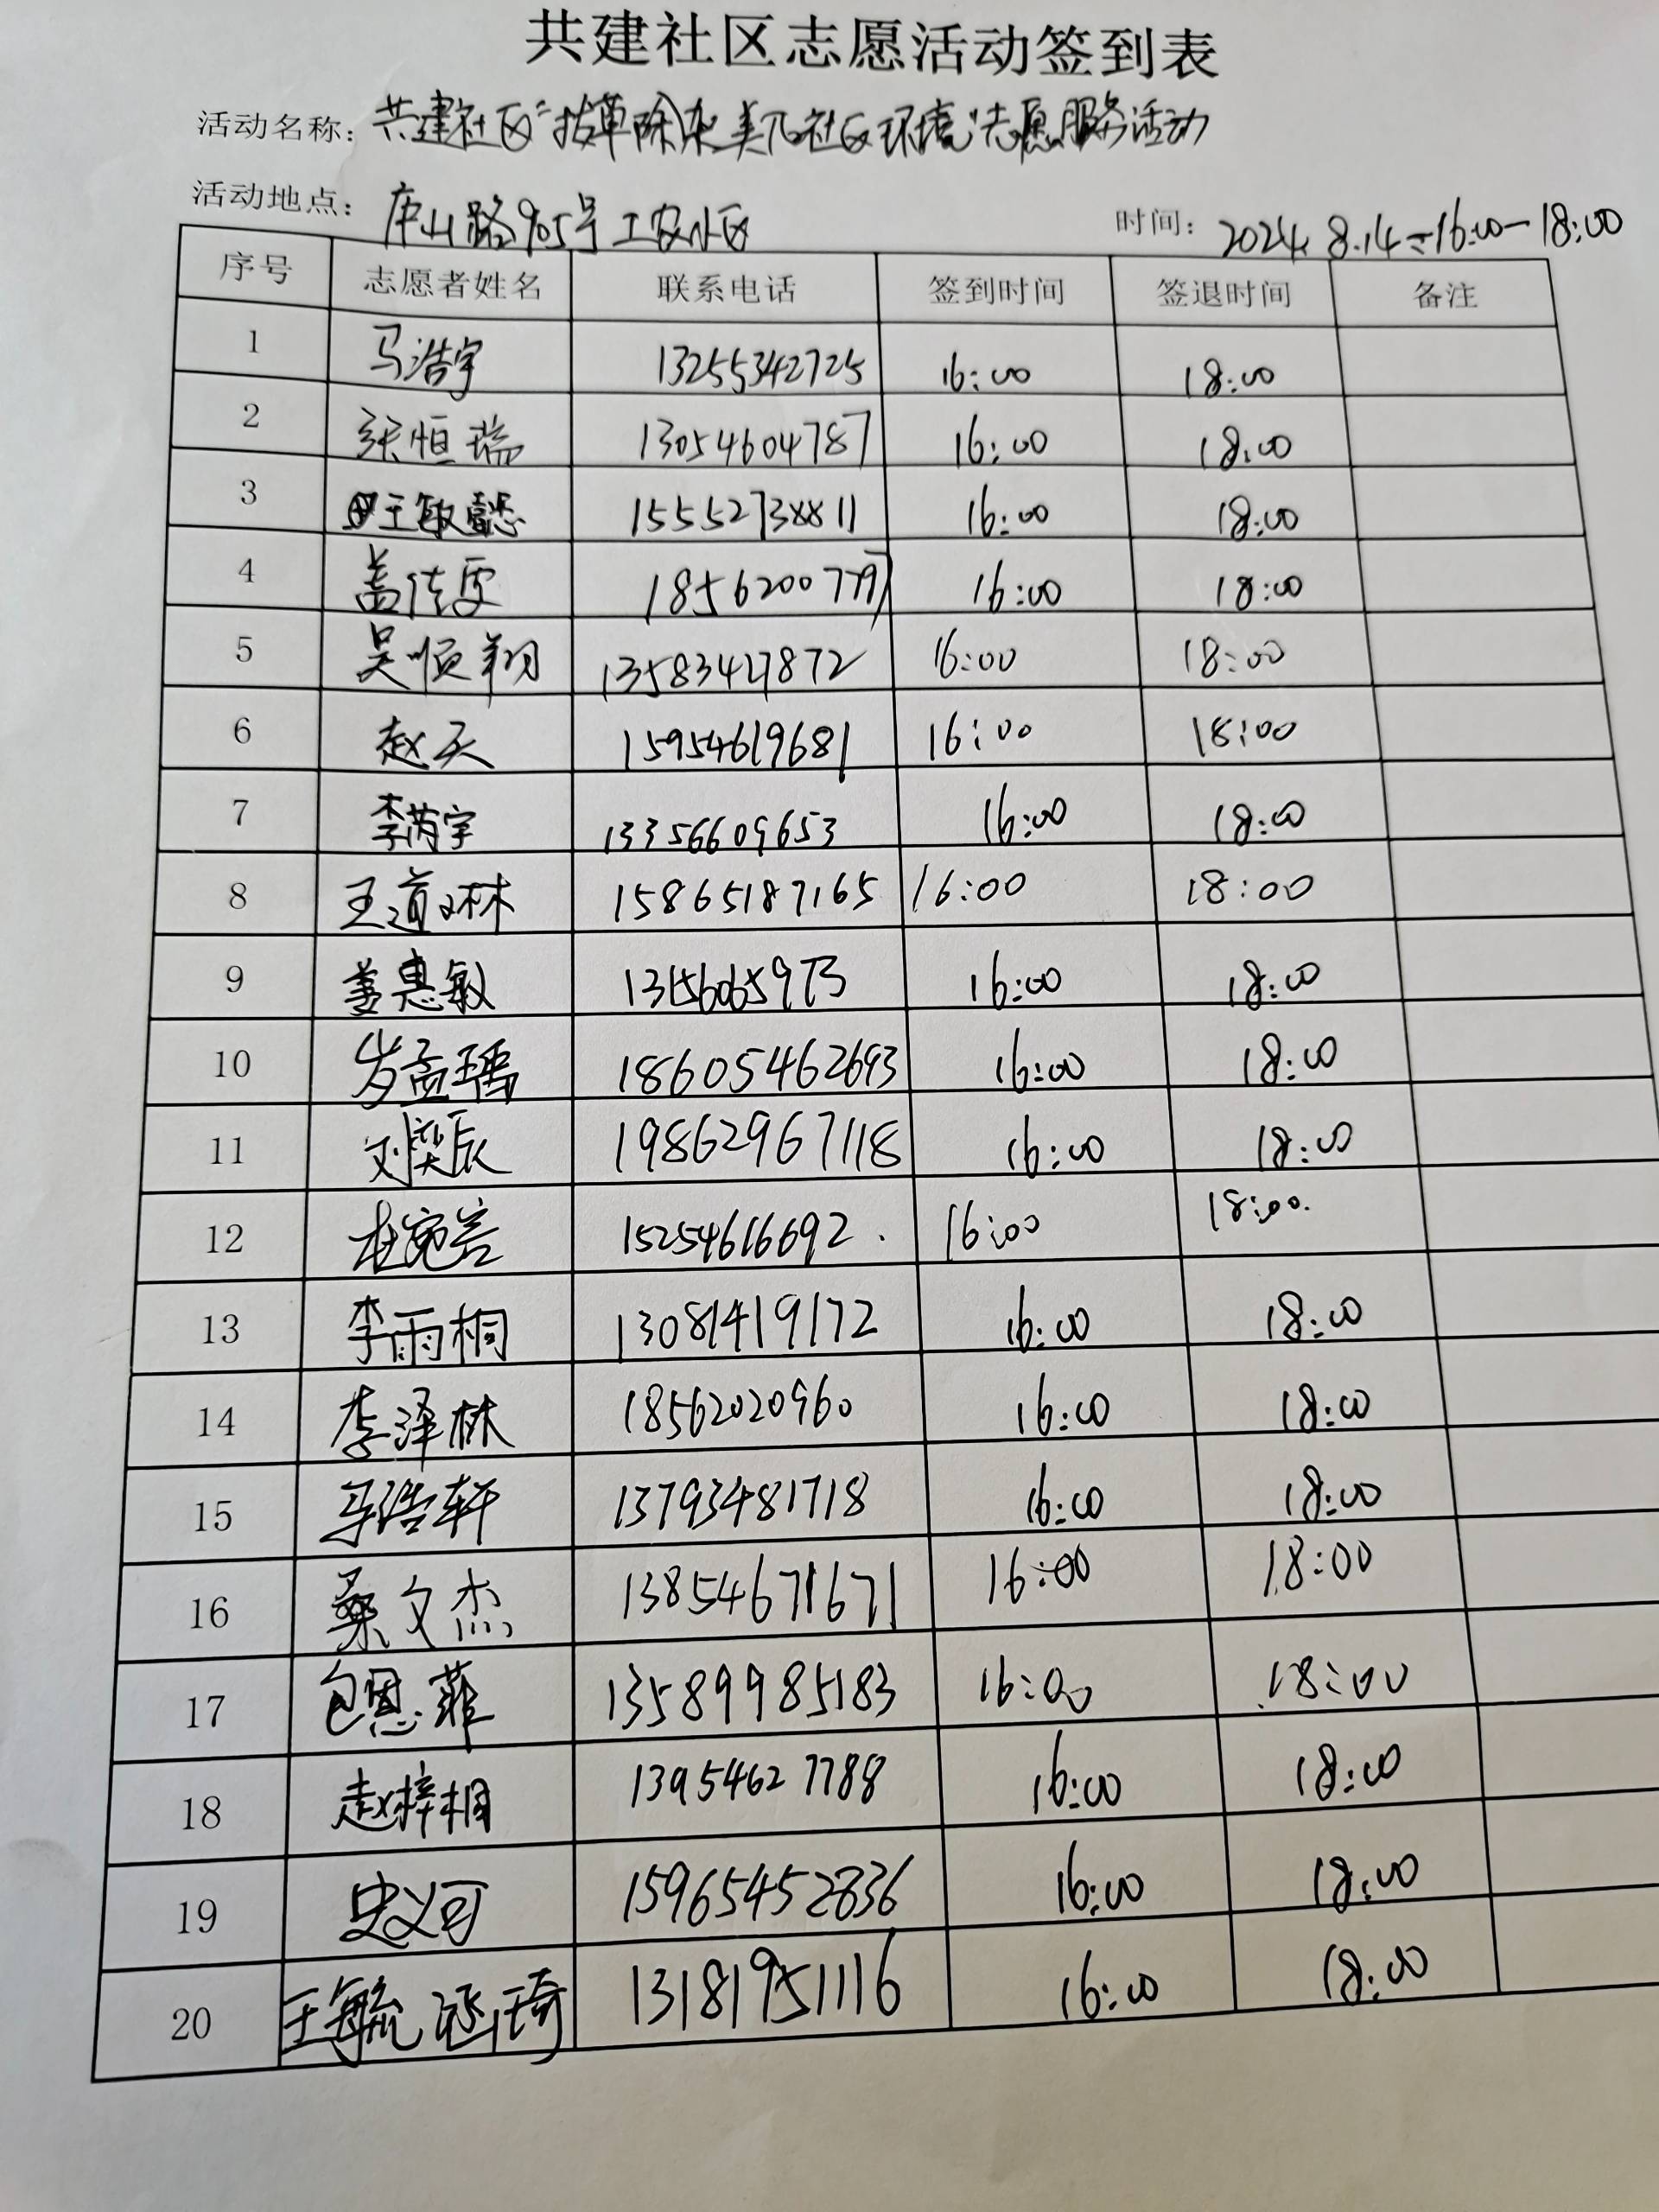 共建社区志愿活动签到表
活动名称: 共建社区"拔草除杂 美化社区环境"志愿服务活动
活动地点: 庐山路905号工农小区 时间: 2024.8.14 16:00-18:00
序号 志愿者姓名 联系电话 签到时间 签退时间 备注
1 马浩宇 13255342725 16:00 18:00
2 张恒瑞 13054604787 16:00 18:00
3 王敏懿 16:00 18:00
4 盖佳雯 16:00 18:00
5 吴顺翔 13583427872 16:00 18:00
6 赵天 15954619681 16:00 18:00
7 李芮宇 13356609653 16:00 18:00
8 王道林 15865187165 16:00 18:00
9 姜惠敏 16:00 18:00
10 岁孟瑶 18605462693 16:00 18:00
11 刘奕辰 19862967118 16:00 18:00
12 杜宛芸 15254616692 16:00 18:00
13 李雨桐 13081419172 16:00 18:00
14 李泽林 18562020960 16:00 18:00
15 马浩轩 13793481718 16:00 18:00
16 桑文杰 13854671671 16:00 18:00
17 包恩菲 13589985183 16:00 18:00
18 赵梓桐 13954627788 16:00 18:00
19 史义可 15965452836 16:00 18:00
20 王毓涵琦 13181951116 16:00 18:00